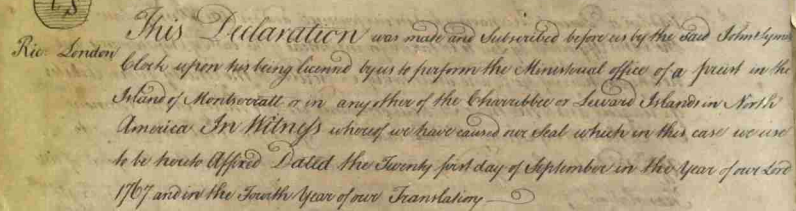 LS
Ric: London
This Declaration was made and Subscribed before us by the said John Symms
Clerk upon his being licenced by us to perform the Ministerial office of a priest in the
Island of Montserratt or in any other of the Charribbee or Leward Islands in North
America In Witness whereof we have caused our Seal which in this case we use
to be hereto Affixed Dated the Twenty first day of September in the Year of our Lord
1767 and in the Fourth Year of our Translation